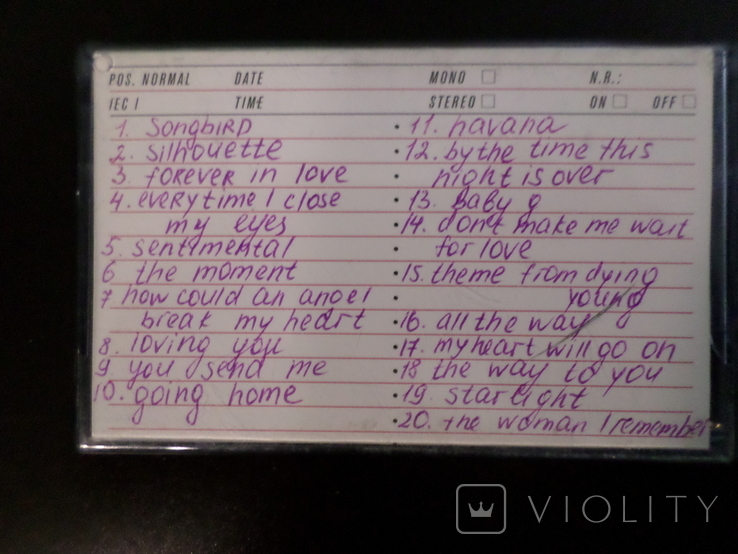 POS. NORMAL DATE MONO N.R.:
IEC I TIME STEREO ON OFF
1. SongbiRD
2. silhouette
3. foReveR in love
4. everytime I close
my eyes
5. sentimental
6 the moment
7 how could an angel
break my heart
8. loving you
9. you send me
10. going home
• 11. havana
• 12. by the time this
• night is over
• 13. Baby g
• 14. don't make me wait
• for love
• 15. theme from dying
• young
• 16. all the way
• 17. my heart will go on
• 18 the way to you
• 19. starlight
• 20. the woman I remember
VIOLITY